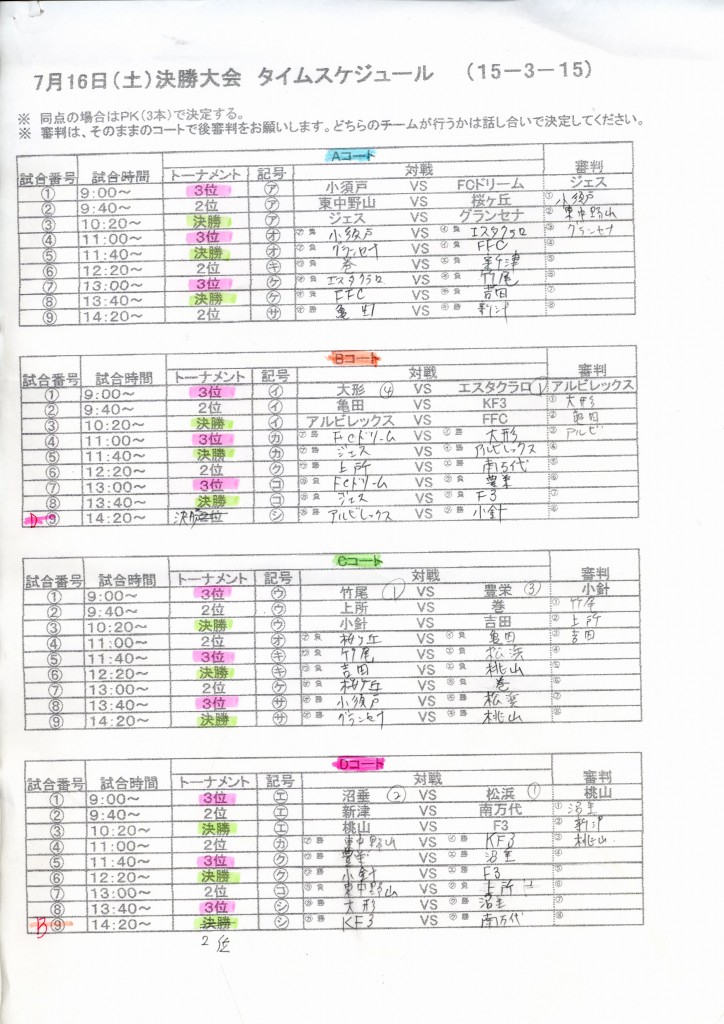 7月16日(土)決勝大会 タイムスケジュール (15-3-15)
※ 同点の場合はPK(3本)で決定する。
※ 審判は、そのままのコートで後審判をお願いします。どちらのチームが行うかは話し合いで決定してください。
Aコート
試合番号 試合時間 トーナメント 記号 対戦 審判
① 9:00~ 3位 ㋐ 小須戸 VS FCドリーム ジェス
② 9:40~ 2位 ㋐ 東中野山 VS 桜ヶ丘 ① 小須戸
③ 10:20~ 決勝 ㋐ ジェス VS グランセナ ② 東中野山
④ 11:00~ 3位 ㋔ ㋐勝 小須戸 VS ㋑負 エスタクラロ ③ グランセナ
⑤ 11:40~ 決勝 ㋔ ㋐負 グランセナ VS ㋑負 FFC ④
⑥ 12:20~ 2位 ㋖ 巻 VS 新津 ⑤
⑦ 13:00~ 3位 ㋘ エスタクラロ VS 竹尾 ⑥
⑧ 13:40~ 決勝 ㋘ FFC VS 吉田 ⑦
⑨ 14:20~ 2位 ㋚ 亀田 VS 新津 ⑧
Bコート
試合番号 試合時間 トーナメント 記号 対戦 審判
① 9:00~ 3位 ㋑ 大形 ④ VS エスタクラロ ① アルビレックス
② 9:40~ 2位 ㋑ 亀田 VS KF3 ① 大形
③ 10:20~ 決勝 ㋑ アルビレックス VS FFC ② 亀田
④ 11:00~ 3位 ㋕ FCドリーム VS 大形 ③ アルビ
⑤ 11:40~ 決勝 ㋕ ジェス VS アルビレックス ④
⑥ 12:20~ 2位 ㋗ 上所 VS 南万代 ⑤
⑦ 13:00~ 3位 ㋙ FCドリーム VS 豊栄 ⑥
⑧ 13:40~ 決勝 ㋙ ジェス VS F3 ⑦
D ⑨ 14:20~ 決勝 2位 ㋛ アルビレックス VS 小針 ⑧
Cコート
試合番号 試合時間 トーナメント 記号 対戦 審判
① 9:00~ 3位 ㋒ 竹尾 ① VS 豊栄 ③ 小針
② 9:40~ 2位 ㋒ 上所 VS 巻 ① 竹尾
③ 10:20~ 決勝 ㋒ 小針 VS 吉田 ② 上所
④ 11:00~ 2位 ㋔ ㋐負 桜ヶ丘 VS ㋑負 亀田 ③ 吉田
⑤ 11:40~ 3位 ㋖ 竹尾 VS 松浜 ④
⑥ 12:20~ 決勝 ㋖ 吉田 VS 桃山 ⑤
⑦ 13:00~ 2位 ㋘ 桜ケ丘 VS 巻 ⑥
⑧ 13:40~ 3位 ㋚ 小須戸 VS 松浜 ⑦
⑨ 14:20~ 決勝 ㋚ グランセナ VS 桃山 ⑧
Dコート
試合番号 試合時間 トーナメント 記号 対戦 審判
① 9:00~ 3位 ㋓ 沼垂 ② VS 松浜 ① 桃山
② 9:40~ 2位 ㋓ 新津 VS 南万代 ① 沼垂
③ 10:20~ 決勝 ㋓ 桃山 VS F3 ② 新津
④ 11:00~ 2位 ㋕ 東中野山 VS KF3 ③ 桃山
⑤ 11:40~ 3位 ㋗ 豊栄 VS 沼垂 ④
⑥ 12:20~ 決勝 ㋗ 小針 VS F3 ⑤
⑦ 13:00~ 2位 ㋙ 東中野山 VS 上所 ⑥
⑧ 13:40~ 3位 ㋛ 大形 VS 沼垂 ⑦
B ⑨ 14:20~ 決勝 ㋛ KF3 VS 南万代 ⑧
2位